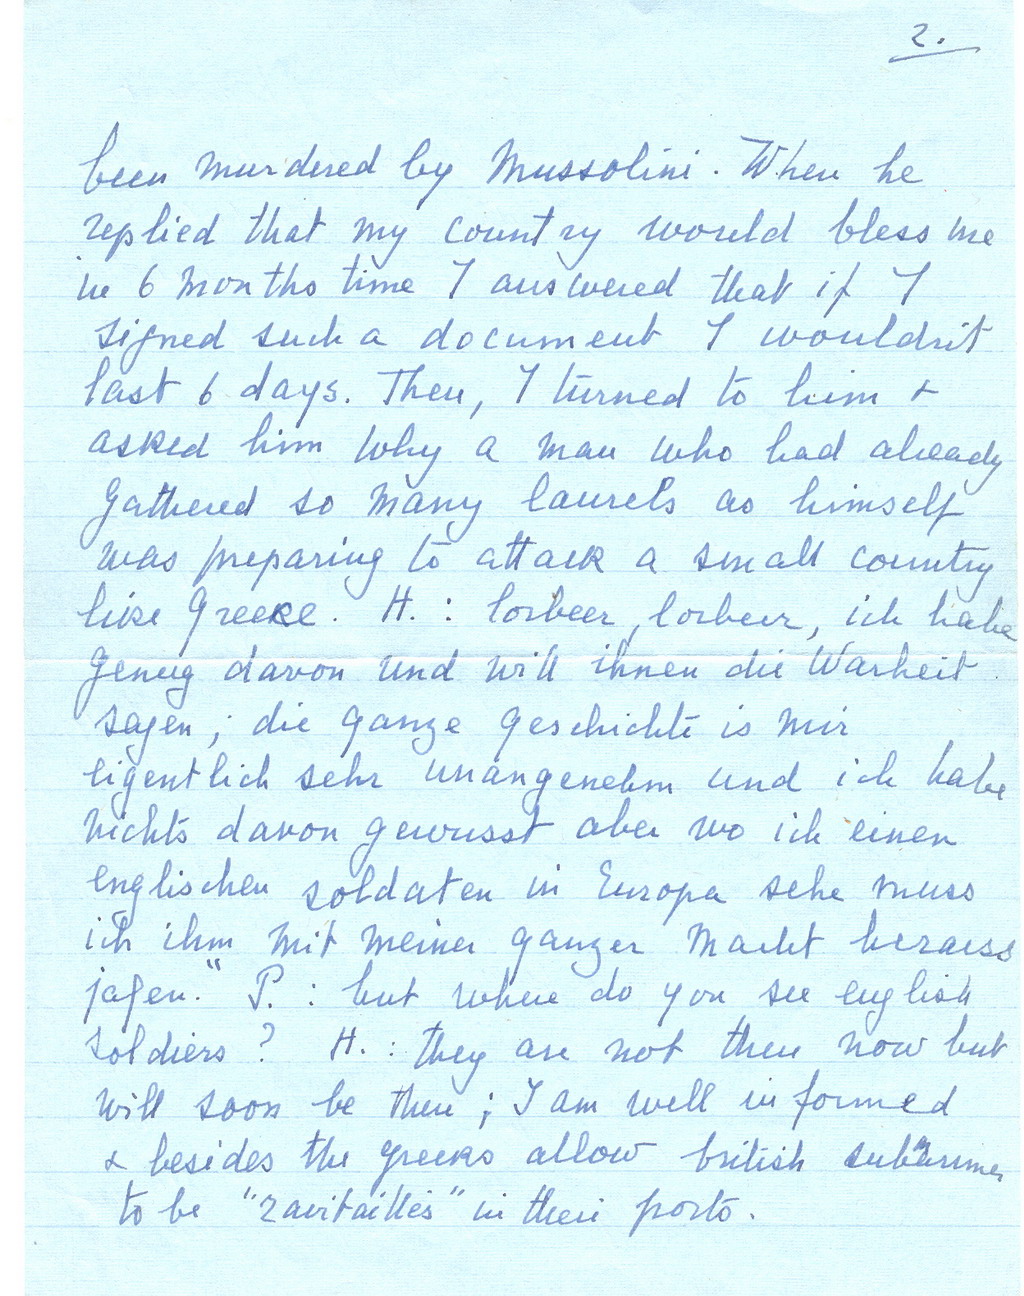 2.
been murdered by Mussolini. When he
replied that my country would bless me
in 6 months time I answered that if I
signed such a document I wouldn't
last 6 days. Then, I turned to him &
asked him why a man who had already
gathered so many laurels as himself
was preparing to attack a small country
like Greece. H.: lorbeer, lorbeer, ich habe
genug davon und will ihnen die Warheit
sagen; die ganze geschichte is mir
eigentlich sehr unangenehm und ich habe
nichts davon gewusst aber wo ich einen
englischen soldaten in Europa sehe muss
ich ihm mit meiner ganzer macht heraus
jagen." P.: but where do you see english
soldiers? H.: they are not there now but
will soon be there; I am well informed
& besides the greeks allow british submarines
to be "ravitaillés" in their ports.